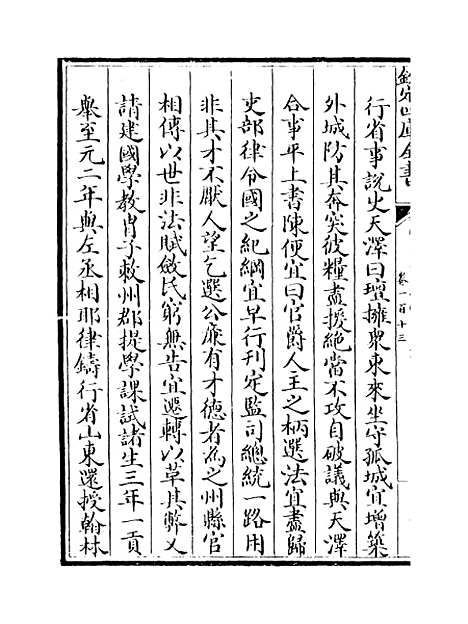 欽定四庫全書
卷一百十三
行省事說史天澤曰璮擁衆東來坐守孤城宜增築
外城防其奔突彼糧盡援絶當不攻自破議與天澤
合事平上書陳便宜曰官爵人主之柄選法宜盡歸
吏部律令國之紀綱宜早行刊定監司總統一路用
非其才不厭人望乞選公廉有才德者為之州縣官
相傳以世非法賦斂民窮無告宜遷轉以革其弊又
請建國學教胄子敕州郡提學課試諸生三年一貢
舉至元二年與左丞相耶律鑄行省山東還授翰林